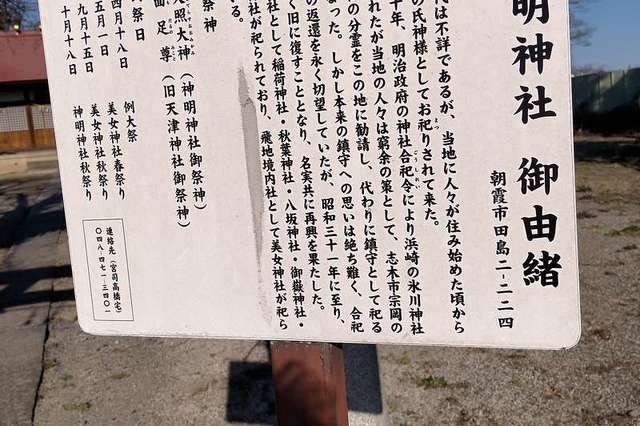 明神社 御由緒
朝霞市田島二-二-二四
は不詳であるが、当地に人々が住み始めた頃から
の氏神様としてお祀りされて来た。
十年、明治政府の神社合祀令により浜崎の氷川神社
れたが当地の人々は窮余の策として、志木市宗岡の
の分霊をこの地に勧請し、代わりに鎮守として祀る
なった。しかし本来の鎮守への思いは絶ち難く、合祀
の返還を永く切望していたが、昭和三十一年に至り、
く旧に復すこととなり、名実共に再興を果たした。
社として稲荷神社・秋葉神社・八坂神社・御嶽神社・
社が祀られており、飛地境内社として美女神社が祀ら
る。
祭神
天照大神（神明神社御祭神）
面足尊（旧天津神社御祭神）
祭日
四月十八日 例大祭
五月一日 美女神社春祭り
九月十五日 美女神社秋祭り
十月十八日 神明神社秋祭り
連絡先（宮司高橋宅）
〇四八-四七一-三四〇一